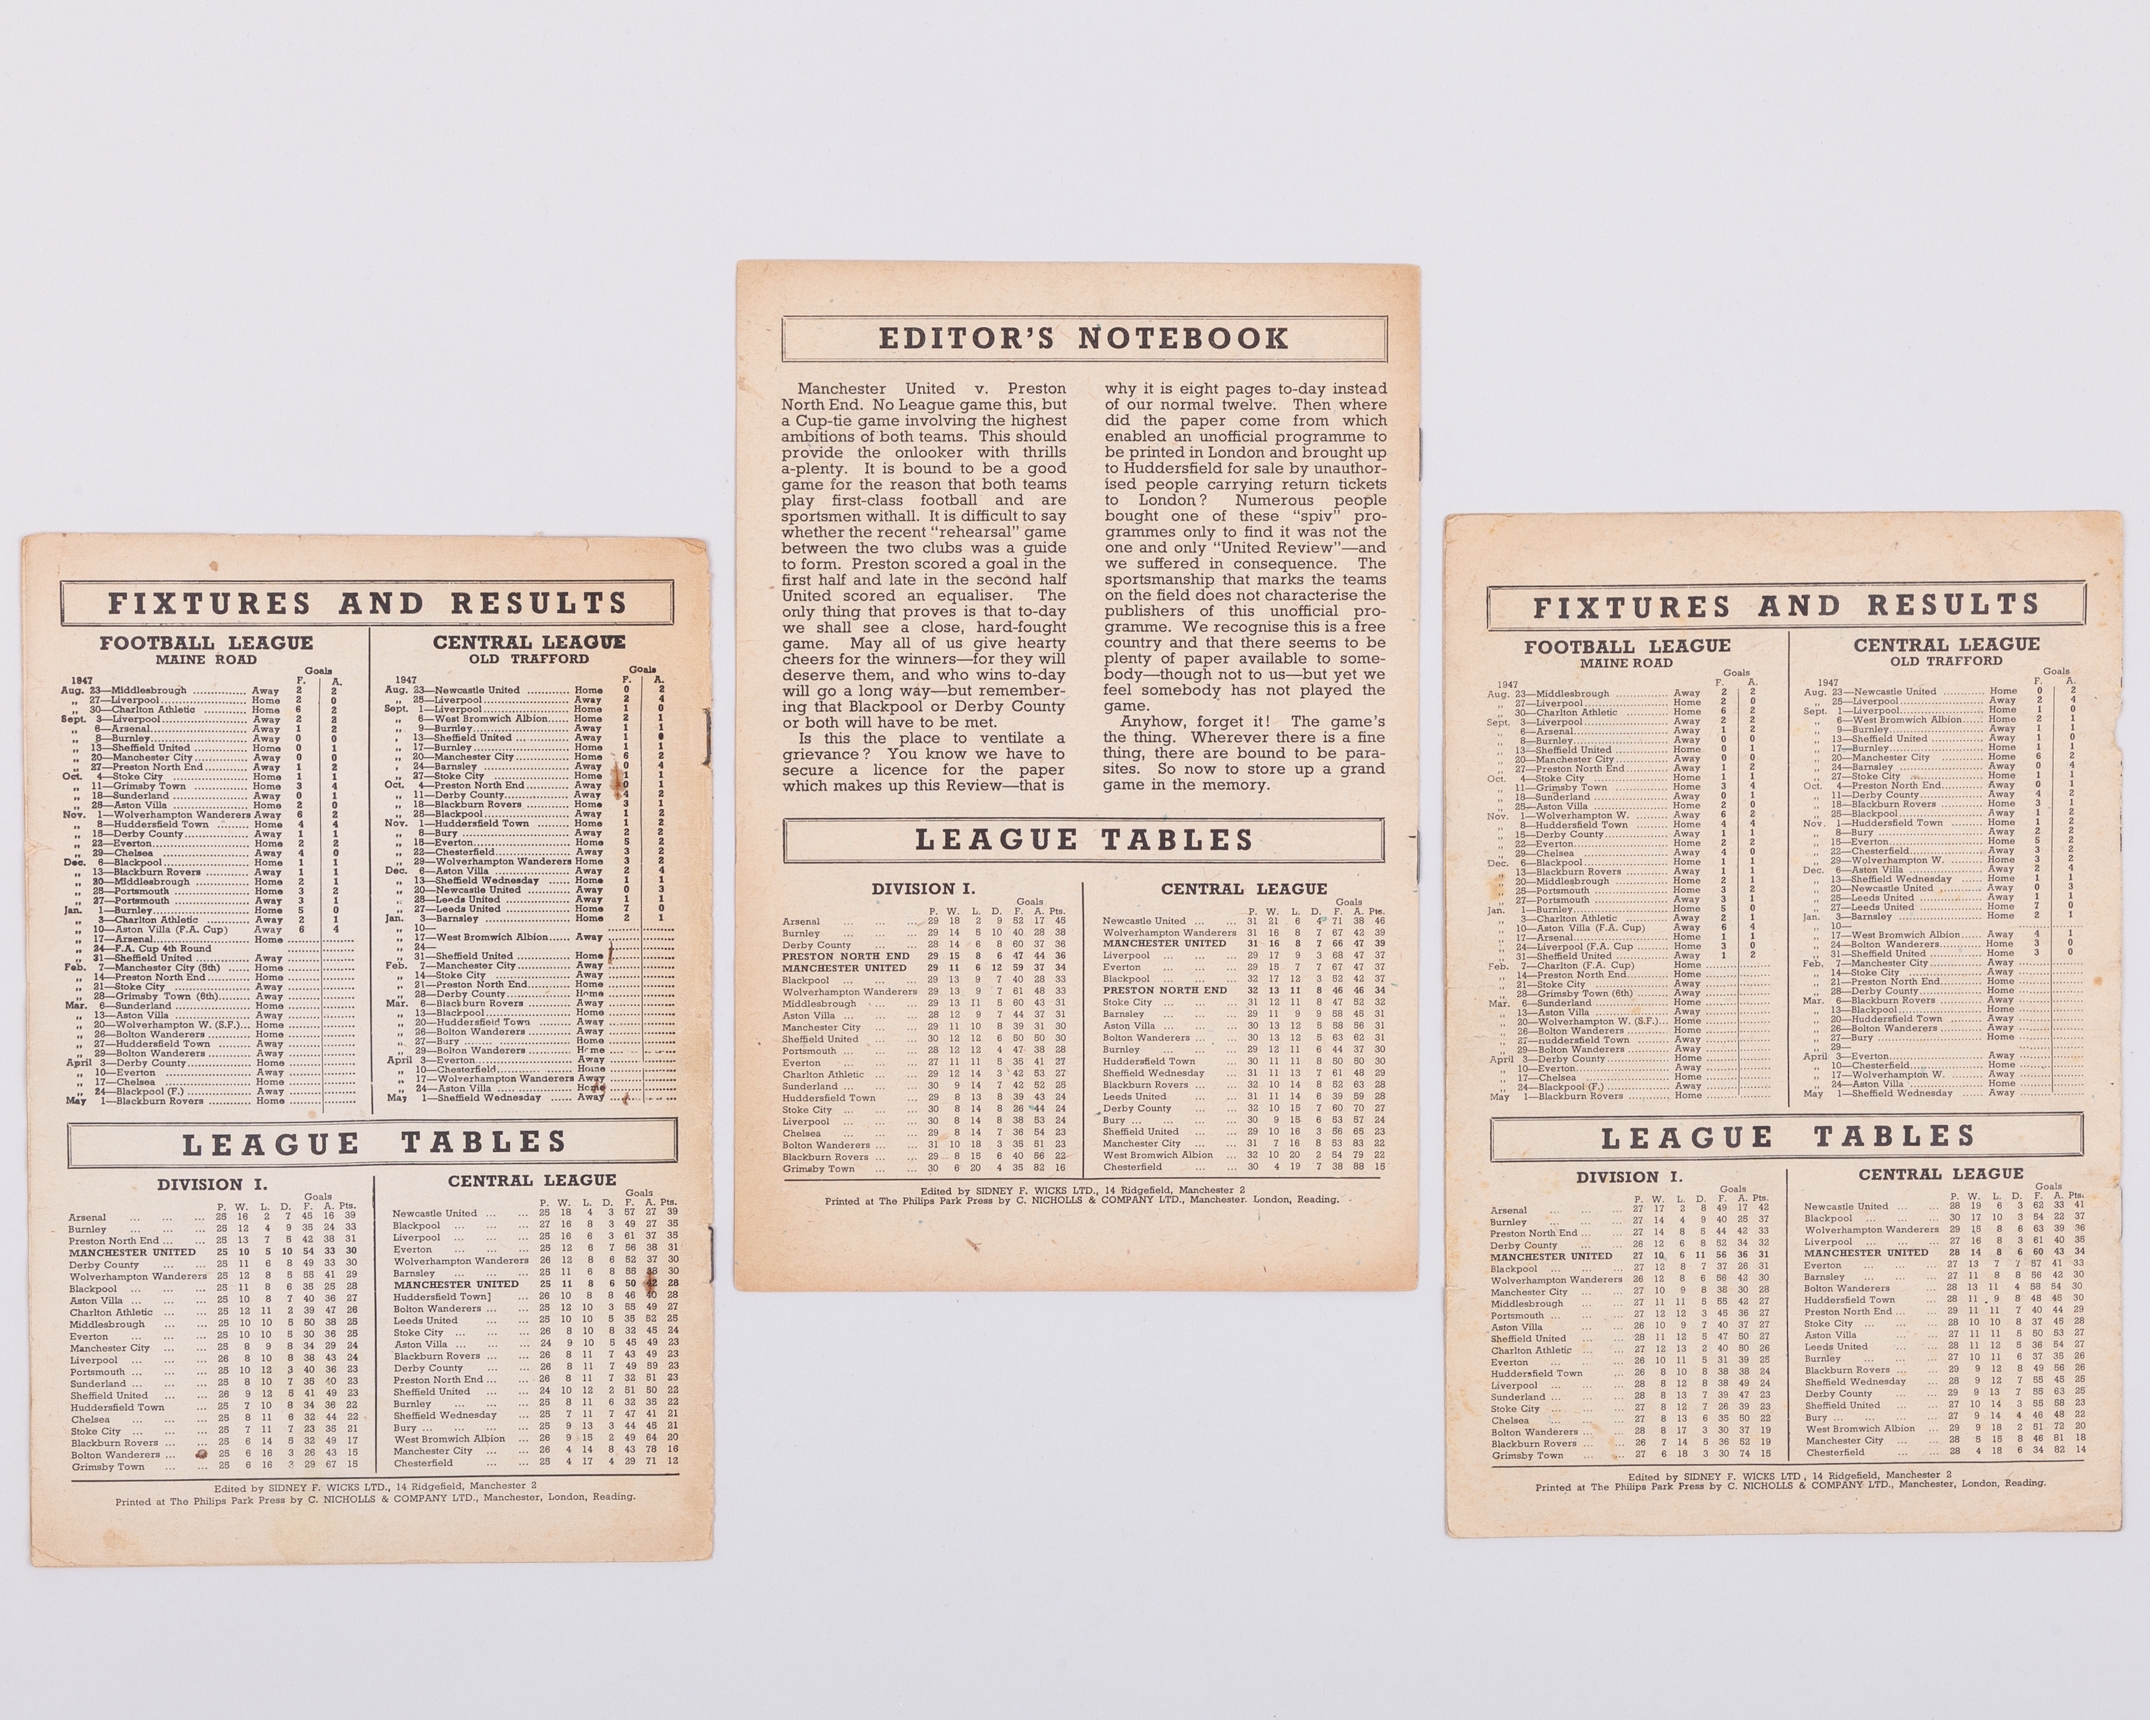 FIXTURES AND RESULTS
FOOTBALL LEAGUE
MAINE ROAD
Goals
1947 F. A.
Aug. 23—Middlesbrough ............ Away 2 2
„ 27—Liverpool ............ Home 2 0
„ 30—Charlton Athletic ............ Home 6 2
Sept. 3—Liverpool ............ Away 2 2
„ 6—Arsenal ............ Away 1 2
„ 8—Burnley ............ Away 0 0
„ 13—Sheffield United ............ Home 0 1
„ 20—Manchester City ............ Away 0 0
„ 27—Preston North End ............ Away 1 2
Oct. 4—Stoke City ............ Home 1 1
„ 11—Grimsby Town ............ Home 3 4
„ 18—Sunderland ............ Away 0 1
„ 25—Aston Villa ............ Home 2 0
Nov. 1—Wolverhampton Wanderers Away 6 2
„ 8—Huddersfield Town ............ Home 4 4
„ 15—Derby County ............ Away 1 1
„ 22—Everton ............ Home 2 2
„ 29—Chelsea ............ Away 4 0
Dec. 6—Blackpool ............ Home 1 1
„ 13—Blackburn Rovers ............ Away 1 1
„ 20—Middlesbrough ............ Home 2 1
„ 25—Portsmouth ............ Home 3 2
„ 27—Portsmouth ............ Away 3 1
Jan. 1—Burnley ............ Home 5 0
„ 3—Charlton Athletic ............ Away 2 1
„ 10—Aston Villa (F.A. Cup) Away 6 4
„ 17—Arsenal ............ Home
„ 24—F.A. Cup 4th Round
„ 31—Sheffield United ............ Away
Feb. 7—Manchester City (5th) ... Home
„ 14—Preston North End ............ Home
„ 21—Stoke City ............ Away
„ 28—Grimsby Town (6th) ...... Away
Mar. 6—Sunderland ............ Home
„ 13—Aston Villa ............ Away
„ 20—Wolverhampton W. (S.F.)... Home
„ 26—Bolton Wanderers ............ Home
„ 27—Huddersfield Town ............ Away
„ 29—Bolton Wanderers ............ Away
April 3—Derby County ............ Home
„ 10—Everton ............ Away
„ 17—Chelsea ............ Home
„ 24—Blackpool (F.) ............ Away
May 1—Blackburn Rovers ............ Home
CENTRAL LEAGUE
OLD TRAFFORD
Goals
1947 F. A.
Aug. 23—Newcastle United ............ Home 0 2
„ 25—Liverpool ............ Away 2 4
Sept. 1—Liverpool ............ Home 1 0
„ 6—West Bromwich Albion ...... Home 2 1
„ 9—Burnley ............ Away 1 1
„ 13—Sheffield United ............ Away 1 0
„ 17—Burnley ............ Home 1 1
„ 20—Manchester City ............ Home 6 2
„ 24—Barnsley ............ Away 0 4
„ 27—Stoke City ............ Home 1 1
Oct. 4—Preston North End ............ Away 0 1
„ 11—Derby County ............ Away 4 2
„ 18—Blackburn Rovers ............ Home 3 1
„ 25—Blackpool ............ Away 1 2
Nov. 1—Huddersfield Town ............ Home 1 2
„ 8—Bury ............ Away 2 2
„ 15—Everton ............ Home 5 2
„ 22—Chesterfield ............ Away 3 2
„ 29—Wolverhampton Wanderers Home 3 2
Dec. 6—Aston Villa ............ Away 2 4
„ 13—Sheffield Wednesday ...... Home 1 1
„ 20—Newcastle United ............ Away 0 3
„ 25—Leeds United ............ Away 1 1
„ 27—Leeds United ............ Home 7 0
Jan. 3—Barnsley ............ Home 2 1
„ 10—
„ 17—West Bromwich Albion ...... Away
„ 24—
„ 31—Sheffield United ............ Home
Feb. 7—Manchester City ............ Away
„ 14—Stoke City ............ Away
„ 21—Preston North End ............ Home
„ 28—Derby County ............ Home
Mar. 6—Blackburn Rovers ............ Away
„ 13—Blackpool ............ Home
„ 20—Huddersfield Town ............ Away
„ 26—Bolton Wanderers ............ Away
„ 27—Bury ............ Home
„ 29—Bolton Wanderers ............ Home
April 3—Everton ............ Away
„ 10—Chesterfield ............ Home
„ 17—Wolverhampton Wanderers Away
„ 24—Aston Villa ............ Home
May 1—Sheffield Wednesday ...... Away
LEAGUE TABLES
DIVISION I.
Goals
P. W. L. D. F. A. Pts.
Arsenal ... ... ... 25 16 2 7 45 16 39
Burnley ... ... ... 25 12 4 9 35 24 33
Preston North End ... ... 25 13 7 5 42 38 31
MANCHESTER UNITED 25 10 5 10 54 33 30
Derby County ... ... 25 11 6 8 49 33 30
Wolverhampton Wanderers 25 12 8 5 55 41 29
Blackpool ... ... ... 25 11 8 6 35 25 28
Aston Villa ... ... ... 25 10 8 7 40 36 27
Charlton Athletic ... ... 25 12 11 2 39 47 26
Middlesbrough ... ... 25 10 10 5 50 38 25
Everton ... ... ... 25 10 10 5 30 36 25
Manchester City ... ... 25 8 9 8 34 29 24
Liverpool ... ... ... 26 8 10 8 38 43 24
Portsmouth ... ... ... 25 10 12 3 40 36 23
Sunderland ... ... ... 25 8 10 7 35 40 23
Sheffield United ... ... 26 9 12 5 41 49 23
Huddersfield Town ... 25 7 10 8 34 36 22
Chelsea ... ... ... 25 8 11 6 32 44 22
Stoke City ... ... ... 25 7 11 7 23 35 21
Blackburn Rovers ... ... 25 6 14 5 32 49 17
Bolton Wanderers ... ... 25 6 16 3 26 43 15
Grimsby Town ... ... 25 6 16 3 29 67 15
CENTRAL LEAGUE
Goals
P. W. L. D. F. A. Pts.
Newcastle United ... ... 25 18 4 3 57 27 39
Blackpool ... ... ... 27 16 8 3 49 27 35
Liverpool ... ... ... 25 16 6 3 61 37 35
Everton ... ... ... 25 12 6 7 56 38 31
Wolverhampton Wanderers 26 12 8 6 52 37 30
Barnsley ... ... ... 25 11 6 8 55 38 30
MANCHESTER UNITED 25 11 8 6 50 42 28
Huddersfield Town] ... 26 10 8 8 46 40 28
Bolton Wanderers ... ... 25 12 10 3 55 49 27
Leeds United ... ... 25 10 10 5 35 52 25
Stoke City ... ... ... 26 8 10 8 32 45 24
Aston Villa ... ... ... 24 9 10 5 45 49 23
Blackburn Rovers ... ... 26 8 11 7 43 49 23
Derby County ... ... 26 8 11 7 49 59 23
Preston North End ... ... 26 8 11 7 32 51 23
Sheffield United ... ... 24 10 12 2 51 50 22
Burnley ... ... ... 25 8 11 6 32 35 22
Sheffield Wednesday ... 25 7 11 7 47 41 21
Bury ... ... ... 25 9 13 3 44 45 21
West Bromwich Albion ... 26 9 15 2 49 64 20
Manchester City ... ... 26 4 14 8 43 78 16
Chesterfield ... ... 25 4 17 4 29 71 12
Edited by SIDNEY F. WICKS LTD., 14 Ridgefield, Manchester 2
Printed at The Philips Park Press by C. NICHOLLS & COMPANY LTD., Manchester, London, Reading.
EDITOR'S NOTEBOOK
Manchester United v. Preston
North End. No League game this, but
a Cup-tie game involving the highest
ambitions of both teams. This should
provide the onlooker with thrills
a-plenty. It is bound to be a good
game for the reason that both teams
play first-class football and are
sportsmen withall. It is difficult to say
whether the recent "rehearsal" game
between the two clubs was a guide
to form. Preston scored a goal in the
first half and late in the second half
United scored an equaliser. The
only thing that proves is that to-day
we shall see a close, hard-fought
game. May all of us give hearty
cheers for the winners—for they will
deserve them, and who wins to-day
will go a long way—but remember-
ing that Blackpool or Derby County
or both will have to be met.
Is this the place to ventilate a
grievance? You know we have to
secure a licence for the paper
which makes up this Review—that is
why it is eight pages to-day instead
of our normal twelve. Then where
did the paper come from which
enabled an unofficial programme to
be printed in London and brought up
to Huddersfield for sale by unauthor-
ised people carrying return tickets
to London? Numerous people
bought one of these "spiv" pro-
grammes only to find it was not the
one and only "United Review"—and
we suffered in consequence. The
sportsmanship that marks the teams
on the field does not characterise the
publishers of this unofficial pro-
gramme. We recognise this is a free
country and that there seems to be
plenty of paper available to some-
body—though not to us—but yet we
feel somebody has not played the
game.
Anyhow, forget it! The game's
the thing. Wherever there is a fine
thing, there are bound to be para-
sites. So now to store up a grand
game in the memory.
LEAGUE TABLES
DIVISION I.
Goals
P. W. L. D. F. A. Pts.
Arsenal ... ... ... 29 18 2 9 52 17 45
Burnley ... ... ... 29 14 5 10 40 28 38
Derby County ... ... 28 14 6 8 60 37 36
PRESTON NORTH END 29 15 8 6 47 44 36
MANCHESTER UNITED 29 11 6 12 59 37 34
Blackpool ... ... ... 29 13 9 7 40 28 33
Wolverhampton Wanderers 29 13 9 7 61 48 33
Middlesbrough ... ... 29 13 11 5 60 43 31
Aston Villa ... ... ... 28 12 9 7 44 37 31
Manchester City ... ... 29 11 10 8 39 31 30
Sheffield United ... ... 30 12 12 6 50 50 30
Portsmouth ... ... ... 28 12 12 4 47 38 28
Everton ... ... ... 27 11 11 5 35 41 27
Charlton Athletic ... ... 29 12 14 3 42 53 27
Sunderland ... ... ... 30 9 14 7 42 52 25
Huddersfield Town ... 29 8 13 8 39 43 24
Stoke City ... ... ... 30 8 14 8 26 44 24
Liverpool ... ... ... 30 8 14 8 38 53 24
Chelsea ... ... ... 29 8 14 7 36 54 23
Bolton Wanderers ... ... 31 10 18 3 35 51 23
Blackburn Rovers ... ... 29 8 15 6 40 56 22
Grimsby Town ... ... 30 6 20 4 35 82 16
CENTRAL LEAGUE
Goals
P. W. L. D. F. A. Pts.
Newcastle United ... ... 31 21 6 4 71 38 46
Wolverhampton Wanderers 31 16 8 7 67 42 39
MANCHESTER UNITED 31 16 8 7 66 47 39
Liverpool ... ... ... 29 17 9 3 68 47 37
Everton ... ... ... 29 15 7 7 67 47 37
Blackpool ... ... ... 32 17 12 3 52 42 37
PRESTON NORTH END 32 13 11 8 46 46 34
Stoke City ... ... ... 31 12 11 8 47 52 32
Barnsley ... ... ... 29 11 9 9 58 45 31
Aston Villa ... ... ... 30 13 12 5 58 56 31
Bolton Wanderers ... ... 30 13 12 5 63 62 31
Burnley ... ... ... 29 12 11 6 44 37 30
Huddersfield Town ... 30 11 11 8 50 50 30
Sheffield Wednesday ... 31 11 13 7 61 48 29
Blackburn Rovers ... ... 32 10 14 8 52 63 28
Leeds United ... ... 31 11 14 6 39 59 28
Derby County ... ... 32 10 15 7 60 70 27
Bury ... ... ... 30 9 15 6 53 57 24
Sheffield United ... ... 29 10 16 3 56 65 23
Manchester City ... ... 31 7 16 8 53 83 22
West Bromwich Albion ... 32 10 20 2 54 79 22
Chesterfield ... ... 30 4 19 7 38 88 15
Edited by SIDNEY F. WICKS LTD., 14 Ridgefield, Manchester 2
Printed at The Philips Park Press by C. NICHOLLS & COMPANY LTD., Manchester. London, Reading.
FIXTURES AND RESULTS
FOOTBALL LEAGUE
MAINE ROAD
Goals
1947 F. A.
Aug. 23—Middlesbrough ............ Away 2 2
„ 27—Liverpool ............ Home 2 0
„ 30—Charlton Athletic ............ Home 6 2
Sept. 3—Liverpool ............ Away 2 2
„ 6—Arsenal ............ Away 1 2
„ 8—Burnley ............ Away 0 0
„ 13—Sheffield United ............ Home 0 1
„ 20—Manchester City ............ Away 0 0
„ 27—Preston North End ............ Away 1 2
Oct. 4—Stoke City ............ Home 1 1
„ 11—Grimsby Town ............ Home 3 4
„ 18—Sunderland ............ Away 0 1
„ 25—Aston Villa ............ Home 2 0
Nov. 1—Wolverhampton W. ............ Away 6 2
„ 8—Huddersfield Town ............ Home 4 4
„ 15—Derby County ............ Away 1 1
„ 22—Everton ............ Home 2 2
„ 29—Chelsea ............ Away 4 0
Dec. 6—Blackpool ............ Home 1 1
„ 13—Blackburn Rovers ............ Away 1 1
„ 20—Middlesbrough ............ Home 2 1
„ 25—Portsmouth ............ Home 3 2
„ 27—Portsmouth ............ Away 3 1
Jan. 1—Burnley ............ Home 5 0
„ 3—Charlton Athletic ............ Away 2 1
„ 10—Aston Villa (F.A. Cup) Away 6 4
„ 17—Arsenal ............ Home 1 1
„ 24—Liverpool (F.A. Cup Home 3 0
„ 31—Sheffield United ............ Away 1 2
Feb. 7—Charlton (F.A. Cup) Home
„ 14—Preston North End ............ Home
„ 21—Stoke City ............ Away
„ 28—Grimsby Town (6th) ...... Away
Mar. 6—Sunderland ............ Home
„ 13—Aston Villa ............ Away
„ 20—Wolverhampton W. (S.F.)... Home
„ 26—Bolton Wanderers ............ Home
„ 27—nuddersfield Town ............ Away
„ 29—Bolton Wanderers ............ Away
April 3—Derby County ............ Home
„ 10—Everton ............ Away
„ 17—Chelsea ............ Home
„ 24—Blackpool (F.) ............ Away
May 1—Blackburn Rovers ............ Home
CENTRAL LEAGUE
OLD TRAFFORD
Goals
1947 F. A.
Aug. 23—Newcastle United ............ Home 0 2
„ 25—Liverpool ............ Away 2 4
Sept. 1—Liverpool ............ Home 1 0
„ 6—West Bromwich Albion ...... Home 2 1
„ 9—Burnley ............ Away 1 1
„ 13—Sheffield United ............ Away 1 0
„ 17—Burnley ............ Home 1 1
„ 20—Manchester City ............ Home 6 2
„ 24—Barnsley ............ Away 0 4
„ 27—Stoke City ............ Home 1 1
Oct. 4—Preston North End ............ Away 0 1
„ 11—Derby County ............ Away 4 2
„ 18—Blackburn Rovers ............ Home 3 1
„ 25—Blackpool ............ Away 1 2
Nov. 1—Huddersfield Town ............ Home 1 2
„ 8—Bury ............ Away 2 2
„ 15—Everton ............ Home 5 2
„ 22—Chesterfield ............ Away 3 2
„ 29—Wolverhampton W. ............ Home 3 2
Dec. 6—Aston Villa ............ Away 2 4
„ 13—Sheffield Wednesday ...... Home 1 1
„ 20—Newcastle United ............ Away 0 3
„ 25—Leeds United ............ Away 1 1
„ 27—Leeds United ............ Home 7 0
Jan. 3—Barnsley ............ Home 2 1
„ 10—
„ 17—West Bromwich Albion ...... Away 4 1
„ 24—Bolton Wanderers ............ Home 3 0
„ 31—Sheffield United ............ Home 3 0
Feb. 7—Manchester City ............ Away
„ 14—Stoke City ............ Away
„ 21—Preston North End ............ Home
„ 28—Derby County ............ Home
Mar. 6—Blackburn Rovers ............ Away
„ 13—Blackpool ............ Home
„ 20—Huddersfield Town ............ Away
„ 26—Bolton Wanderers ............ Away
„ 27—Bury ............ Home
„ 29—
April 3—Everton ............ Away
„ 10—Chesterfield ............ Home
„ 17—Wolverhampton W. ............ Away
„ 24—Aston Villa ............ Home
May 1—Sheffield Wednesday ...... Away
LEAGUE TABLES
DIVISION I.
Goals
P. W. L. D. F. A. Pts.
Arsenal ... ... ... 27 17 2 8 49 17 42
Burnley ... ... ... 27 14 4 9 40 25 37
Preston North End ... ... 27 14 8 5 44 42 33
Derby County ... ... 26 12 6 8 52 34 32
MANCHESTER UNITED 27 10 6 11 56 36 31
Blackpool ... ... ... 27 12 8 7 37 26 31
Wolverhampton Wanderers 26 12 8 6 56 42 30
Manchester City ... ... 27 10 9 8 38 30 28
Middlesbrough ... ... 27 11 11 5 55 42 27
Portsmouth ... ... ... 27 12 12 3 45 36 27
Aston Villa ... ... ... 26 10 9 7 40 37 27
Sheffield United ... ... 28 11 12 5 47 50 27
Charlton Athletic ... ... 27 12 13 2 40 50 26
Everton ... ... ... 26 10 11 5 31 39 25
Huddersfield Town ... 26 8 10 8 38 38 24
Liverpool ... ... ... 28 8 12 8 38 49 24
Sunderland ... ... ... 28 8 13 7 39 47 23
Stoke City ... ... ... 27 8 12 7 26 39 23
Chelsea ... ... ... 27 8 13 6 35 50 22
Bolton Wanderers ... ... 28 8 17 3 30 37 19
Blackburn Rovers ... ... 26 7 14 5 36 52 19
Grimsby Town ... ... 27 6 18 3 30 74 15
CENTRAL LEAGUE
Goals
P. W. L. D. F. A. Pts.
Newcastle United ... ... 28 19 6 3 62 33 41
Blackpool ... ... ... 30 17 10 3 54 22 37
Wolverhampton Wanderers 29 15 8 6 63 39 36
Liverpool ... ... ... 27 16 8 3 61 40 35
MANCHESTER UNITED 28 14 8 6 60 43 34
Everton ... ... ... 27 13 7 7 57 41 33
Barnsley ... ... ... 27 11 8 8 56 42 30
Bolton Wanderers ... ... 28 13 11 4 58 54 30
Huddersfield Town ... 28 11 9 8 48 45 30
Preston North End ... ... 29 11 11 7 40 44 29
Stoke City ... ... ... 28 10 10 8 37 45 28
Aston Villa ... ... ... 27 11 11 5 50 53 27
Leeds United ... ... 28 11 12 5 36 54 27
Burnley ... ... ... 27 10 11 6 37 35 26
Blackburn Rovers ... ... 29 9 12 8 49 56 26
Sheffield Wednesday ... 28 9 12 7 55 45 25
Derby County ... ... 29 9 13 7 55 63 25
Sheffield United ... ... 27 10 14 3 55 58 23
Bury ... ... ... 27 9 14 4 46 48 22
West Bromwich Albion ... 29 9 18 2 51 72 20
Manchester City ... ... 28 5 15 8 46 81 18
Chesterfield ... ... 28 4 18 6 34 82 14
Edited by SIDNEY F. WICKS LTD., 14 Ridgefield, Manchester 2
Printed at The Philips Park Press by C. NICHOLLS & COMPANY LTD., Manchester, London, Reading.